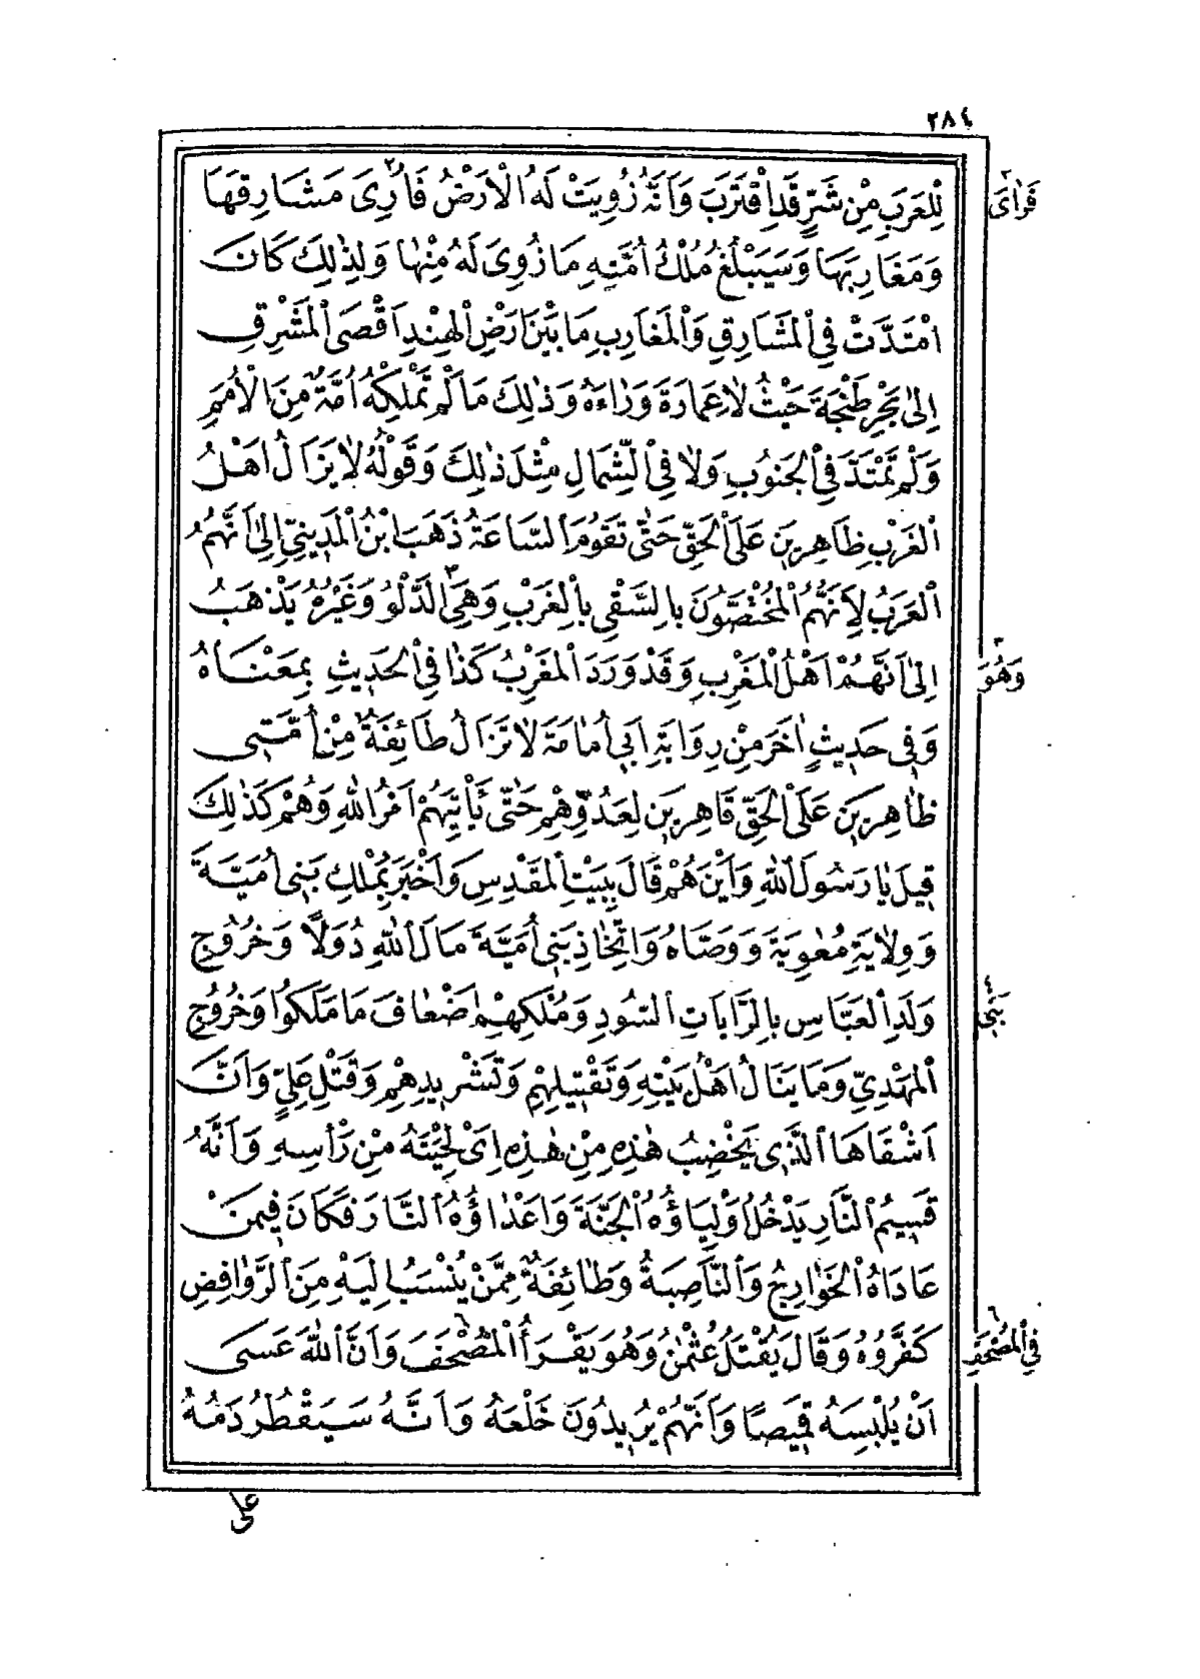 ٢٨٤
لِلْعَرَبِ مِنْ شَرٍّ قَدِ اقْتَرَبَ وَاَنَّهُ زُوِيَتْ لَهُ الْاَرْضُ فَاُرِىَ مَشَارِقَهَا
فَرَاٰى
وَمَغَارِبَهَا وَسَيَبْلُغُ مُلْكُ اُمَّتِهِ مَا زُوِىَ لَهُ مِنْهَا وَلِذٰلِكَ كَانَ
امْتَدَّتْ فِى الْمَشَارِقِ وَالْمَغَارِبِ مَا بَيْنَ اَرْضِ الْهِنْدِ اَقْصَى الْمَشْرِقِ
اِلٰى بَحْرِ طَنْجَةَ حَيْثُ لَا عِمَارَةَ وَرَاءَهُ وَذٰلِكَ مَا لَمْ تَمْلِكْهُ اُمَّةٌ مِنَ الْاُمَمِ
وَلَمْ تَمْتَدَّ فِى الْجَنُوبِ وَلَا فِى الشِّمَالِ مِثْلَ ذٰلِكَ وَقَوْلُهُ لَا يَزَالُ اَهْلُ
الْغَرْبِ ظَاهِرِينَ عَلَى الْحَقِّ حَتّٰى تَقُومَ السَّاعَةُ ذَهَبَ ابْنُ الْمَدِينِىِّ اِلٰى اَنَّهُمُ
الْعَرَبُ لِاَنَّهُمُ الْمُخْتَصُّونَ بِالسَّقْىِ بِالْغَرْبِ وَهِىَ الدَّلْوُ وَغَيْرُهُ يَذْهَبُ
اِلٰى اَنَّهُمْ اَهْلُ الْمَغْرِبِ وَقَدْ وَرَدَ الْمَغْرِبُ كَذَا فِى الْحَدِيثِ بِمَعْنَاهُ
وَهُوَ
وَفِى حَدِيثٍ اٰخَرَ مِنْ رِوَايَةِ اَبِى اُمَامَةَ لَا تَزَالُ طَائِفَةٌ مِنْ اُمَّتِى
ظَاهِرِينَ عَلَى الْحَقِّ قَاهِرِينَ لِعَدُوِّهِمْ حَتّٰى يَأْتِيَهُمْ اَمْرُ اللّٰهِ وَهُمْ كَذٰلِكَ
قِيلَ يَا رَسُولَ اللّٰهِ وَاَيْنَ هُمْ قَالَ بِبَيْتِ الْمَقْدِسِ وَاَخْبَرَ بِمُلْكِ بَنِى اُمَيَّةَ
وَوِلَايَةِ مُعٰوِيَةَ وَوَصَّاهُ وَاتِّخَاذِ بَنِى اُمَيَّةَ مَالَ اللّٰهِ دُوَلًا وَخُرُوجِ
وَلَدِ الْعَبَّاسِ بِالرَّايَاتِ السُّودِ وَمُلْكِهِمْ اَضْعَافَ مَا مَلَكُوا وَخُرُوجِ
بَنِى
الْمَهْدِىِّ وَمَا يَنَالُ اَهْلُ بَيْتِهِ وَتَقْتِيلِهِمْ وَتَشْرِيدِهِمْ وَقَتْلِ عَلِىٍّ وَاَنَّ
اَشْقَاهَا الَّذِى يَخْضِبُ هٰذِهِ مِنْ هٰذِهِ اَىْ لِحْيَتَهُ مِنْ رَأْسِهِ وَاَنَّهُ
قَسِيمُ النَّارِ يَدْخُلُ اَوْلِيَاؤُهُ الْجَنَّةَ وَاَعْدَاؤُهُ النَّارَ فَكَانَ فِيمَنْ
عَادَاهُ الْخَوَارِجُ وَالنَّاصِبَةُ وَطَائِفَةٌ مِمَّنْ يُنْسَبُ اِلَيْهِ مِنَ الرَّوَافِضِ
كَفَّرُوهُ وَقَالَ يُقْتَلُ عُثْمٰنُ وَهُوَ يَقْرَأُ الْمُصْحَفَ وَاَنَّ اللّٰهَ عَسَى
فِى الْمُصْحَفِ
اَنْ يُلْبِسَهُ قَمِيصًا وَاَنَّهُمْ يُرِيدُونَ خَلْعَهُ وَاَنَّهُ سَيَقْطُرُ دَمُهُ
على